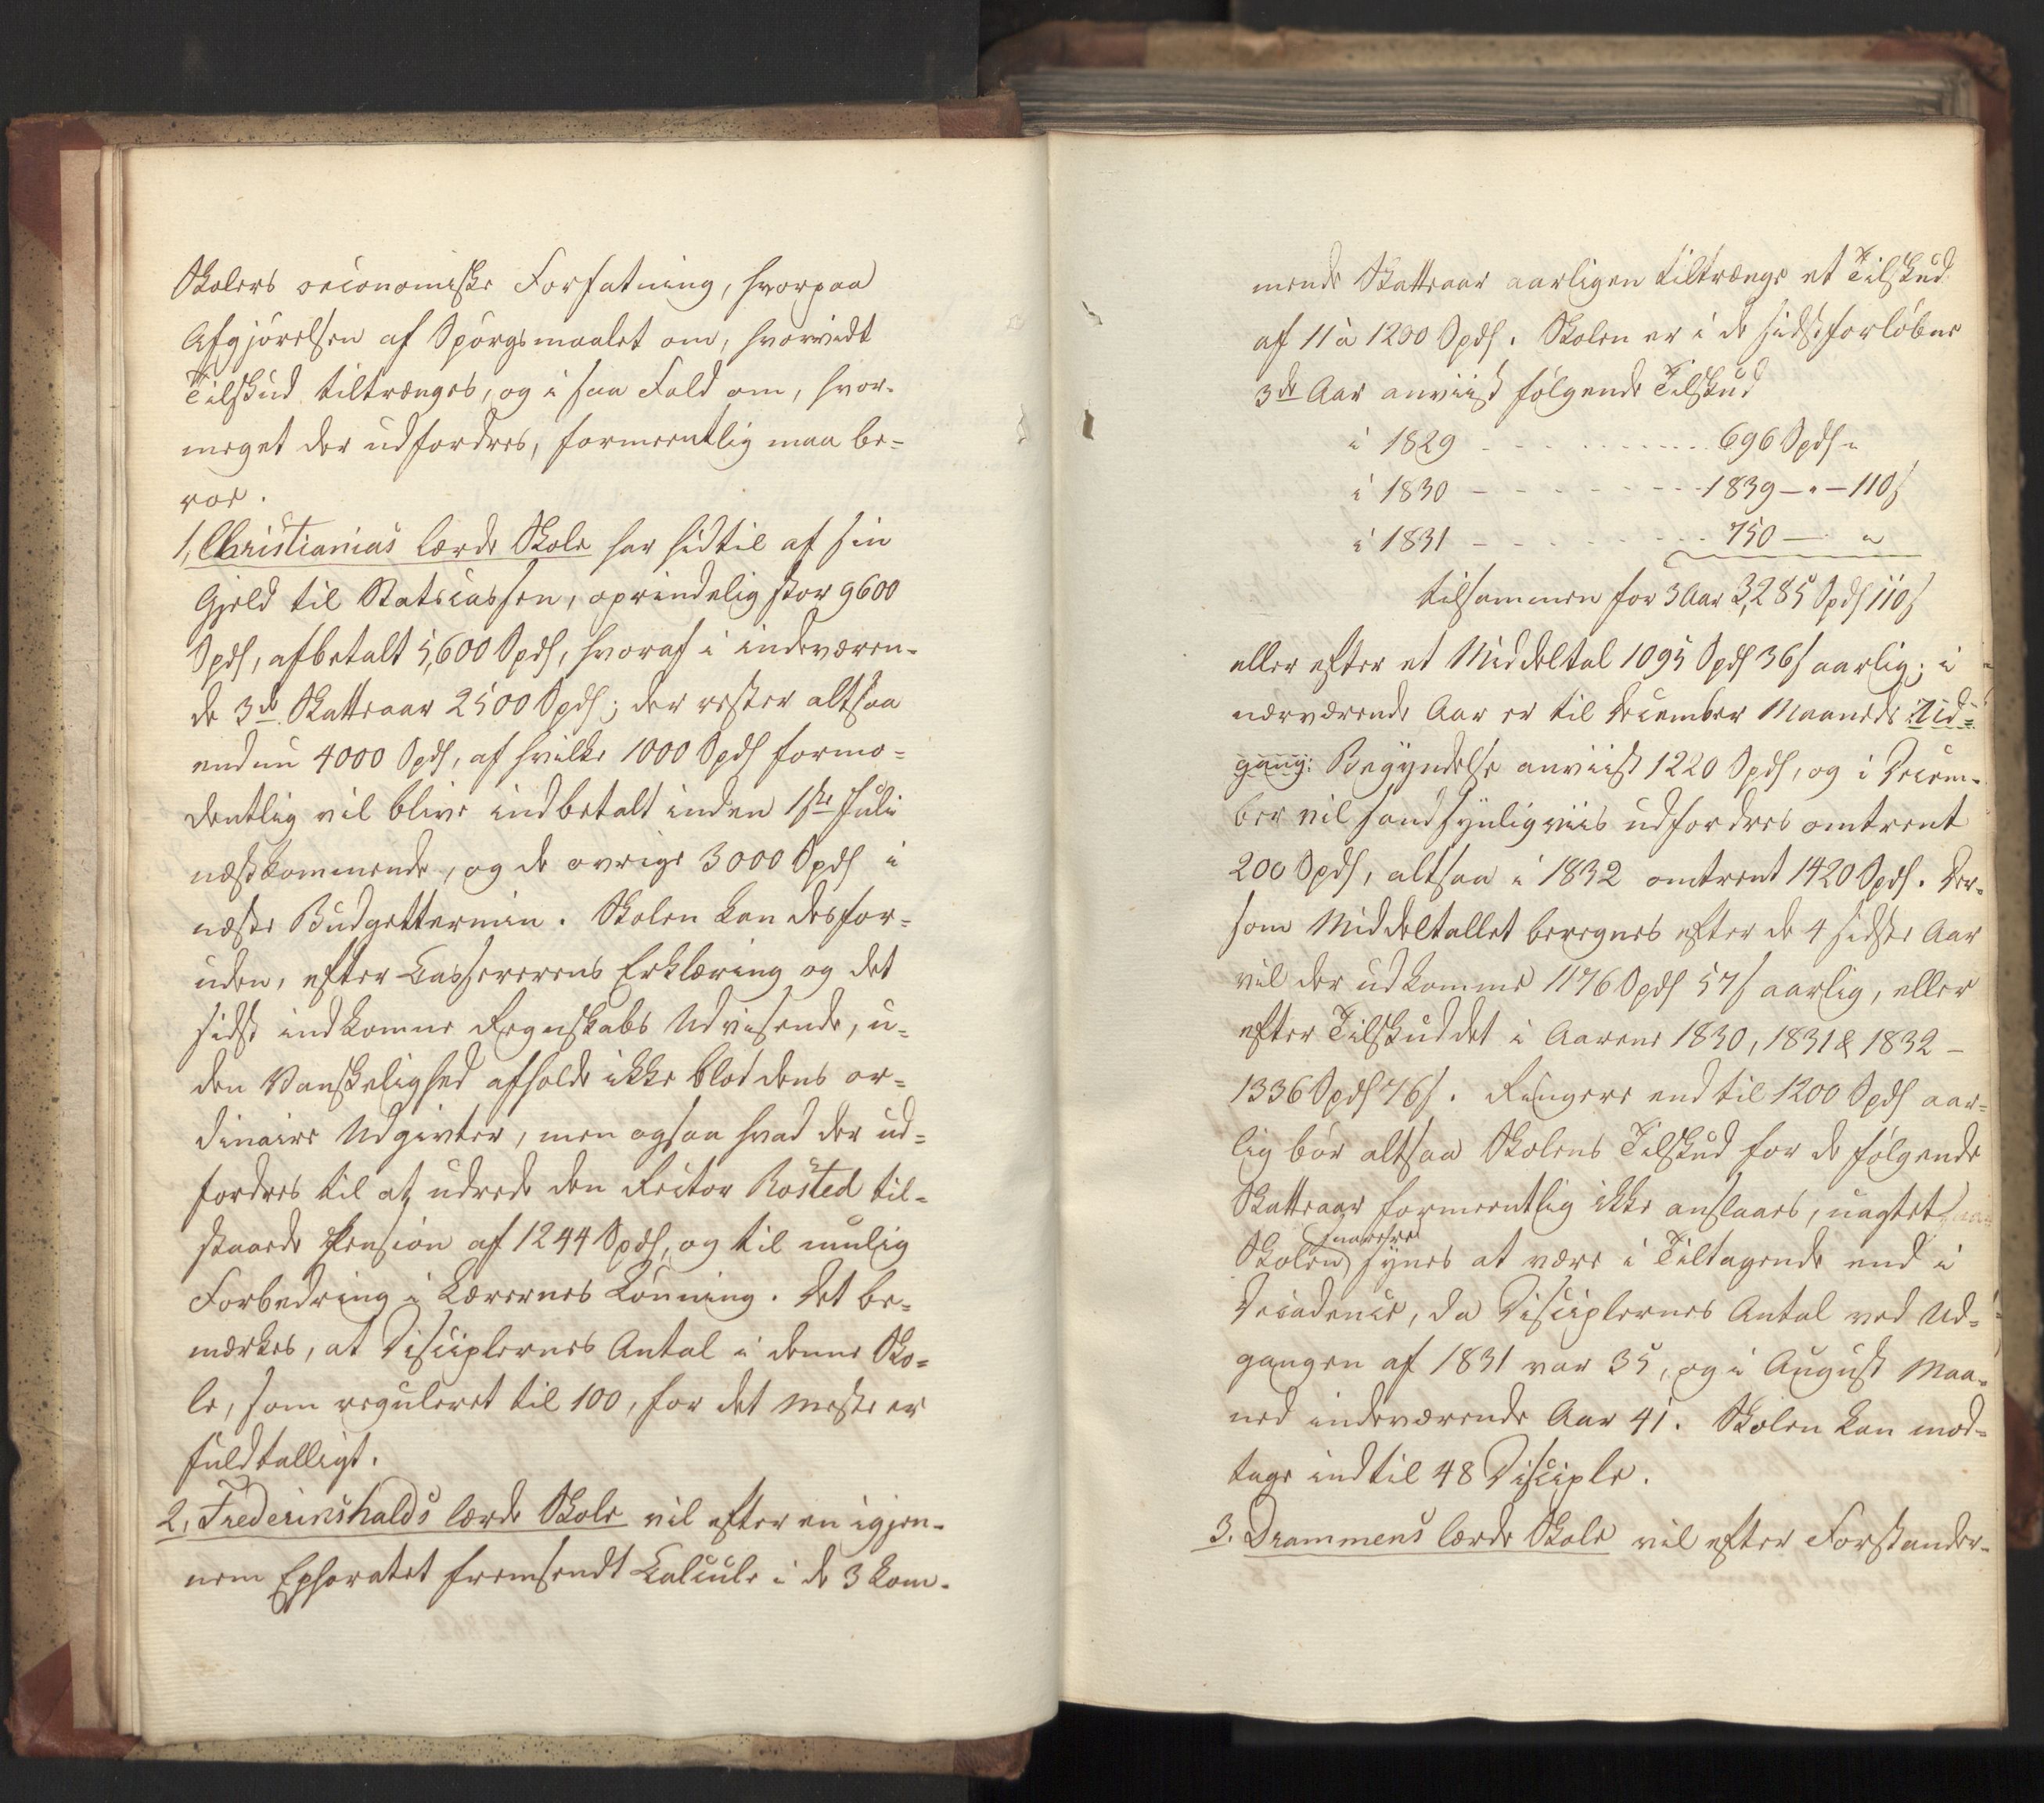 Skolers oeconomiske Forfatning, hvorpaa
Afgjørelsen af Spørgsmaalet om, hvorvidt
Tilskud tiltrænges, og i saa Fald om, hvor-
meget der udfordres, formeentlig maa be-
roe.
1, Christianias lærde Skole har hidtil af sin
Gjeld til Statscassen, oprindelig stor 9600
Spds, afbetalt 5,600 Spds, hvoraf i indeværen-
de 3de Skatteaar 2500 Spds; der rester altsaa
endnu 4000 Spds, af hvilke 1000 Spds formo-
dentlig vil blive indbetalt inden 1ste Juli
næstkommende, og de øvrige 3000 Spds i
næste Budgettermin. Skolen kan desfor-
uden, efter Cassererens Erklæring og det
sidst indkomne Regnskabs Udvisende, u-
den Vanskelighed afholde ikke blot dens or-
dinaire Udgivter, men ogsaa hvad der ud-
fordres til at udrede den Rector Rosted til-
staaede Pension af 1244 Spds, og til mulig
Forbedring i Lærernes Lønning. Det be-
mærkes, at Disciplernes Antal i denne Sko-
le, som reguleret til 100, for det meste er
fuldtalligt.
2, Fredericshalds lærde Skole vil efter en igjen-
nem Ephoratet fremsendt Calcule i de 3 kom-
mende Skatteaar aarligen tiltrænge et Tilskud
af 11 à 1200 Spds. Skolen er i de sidstforløbne
3de Aar anviist følgende Tilskud
i 1829 - - - - - - - - 696 Spds "
i 1830 - - - - - - - - 1839 — " — 110 s
i 1831 - - - - - - - - 750 — "
tilsammen for 3 Aar 3,285 Spds 110 s
eller efter et Middeltal 1095 Spds 36 s aarlig; i
nærværende Aar er til December Maaneds Ud-
gang: Begyndelse anviist 1220 Spds, og i Decem-
ber vil sandsynligviis udfordres omtrent
200 Spds, altsaa i 1832 omtrent 1420 Spds. Der-
som Middeltallet beregnes efter de 4 sidste Aar
vil der udkomme 1176 Spds 57 s aarlig, eller
efter Tilskuddet i Aarene 1830, 1831 & 1832 —
1336 Spds 76 s. Ringere end til 1200 Spds aar-
lig bør altsaa Skolens Tilskud for de følgende
Skatteaar formeentlig ikke anslaaes, uagtet
snarere
Skolen synes at være i Tiltagende end i
Decadence, da Disciplernes Antal ved Ud-
gangen af 1831 var 35, og i August Maa-
ned indeværende Aar 41. Skolen kan mod-
tage indtil 48 Disciple.
3. Drammens lærde Skole vil efter Forstander-